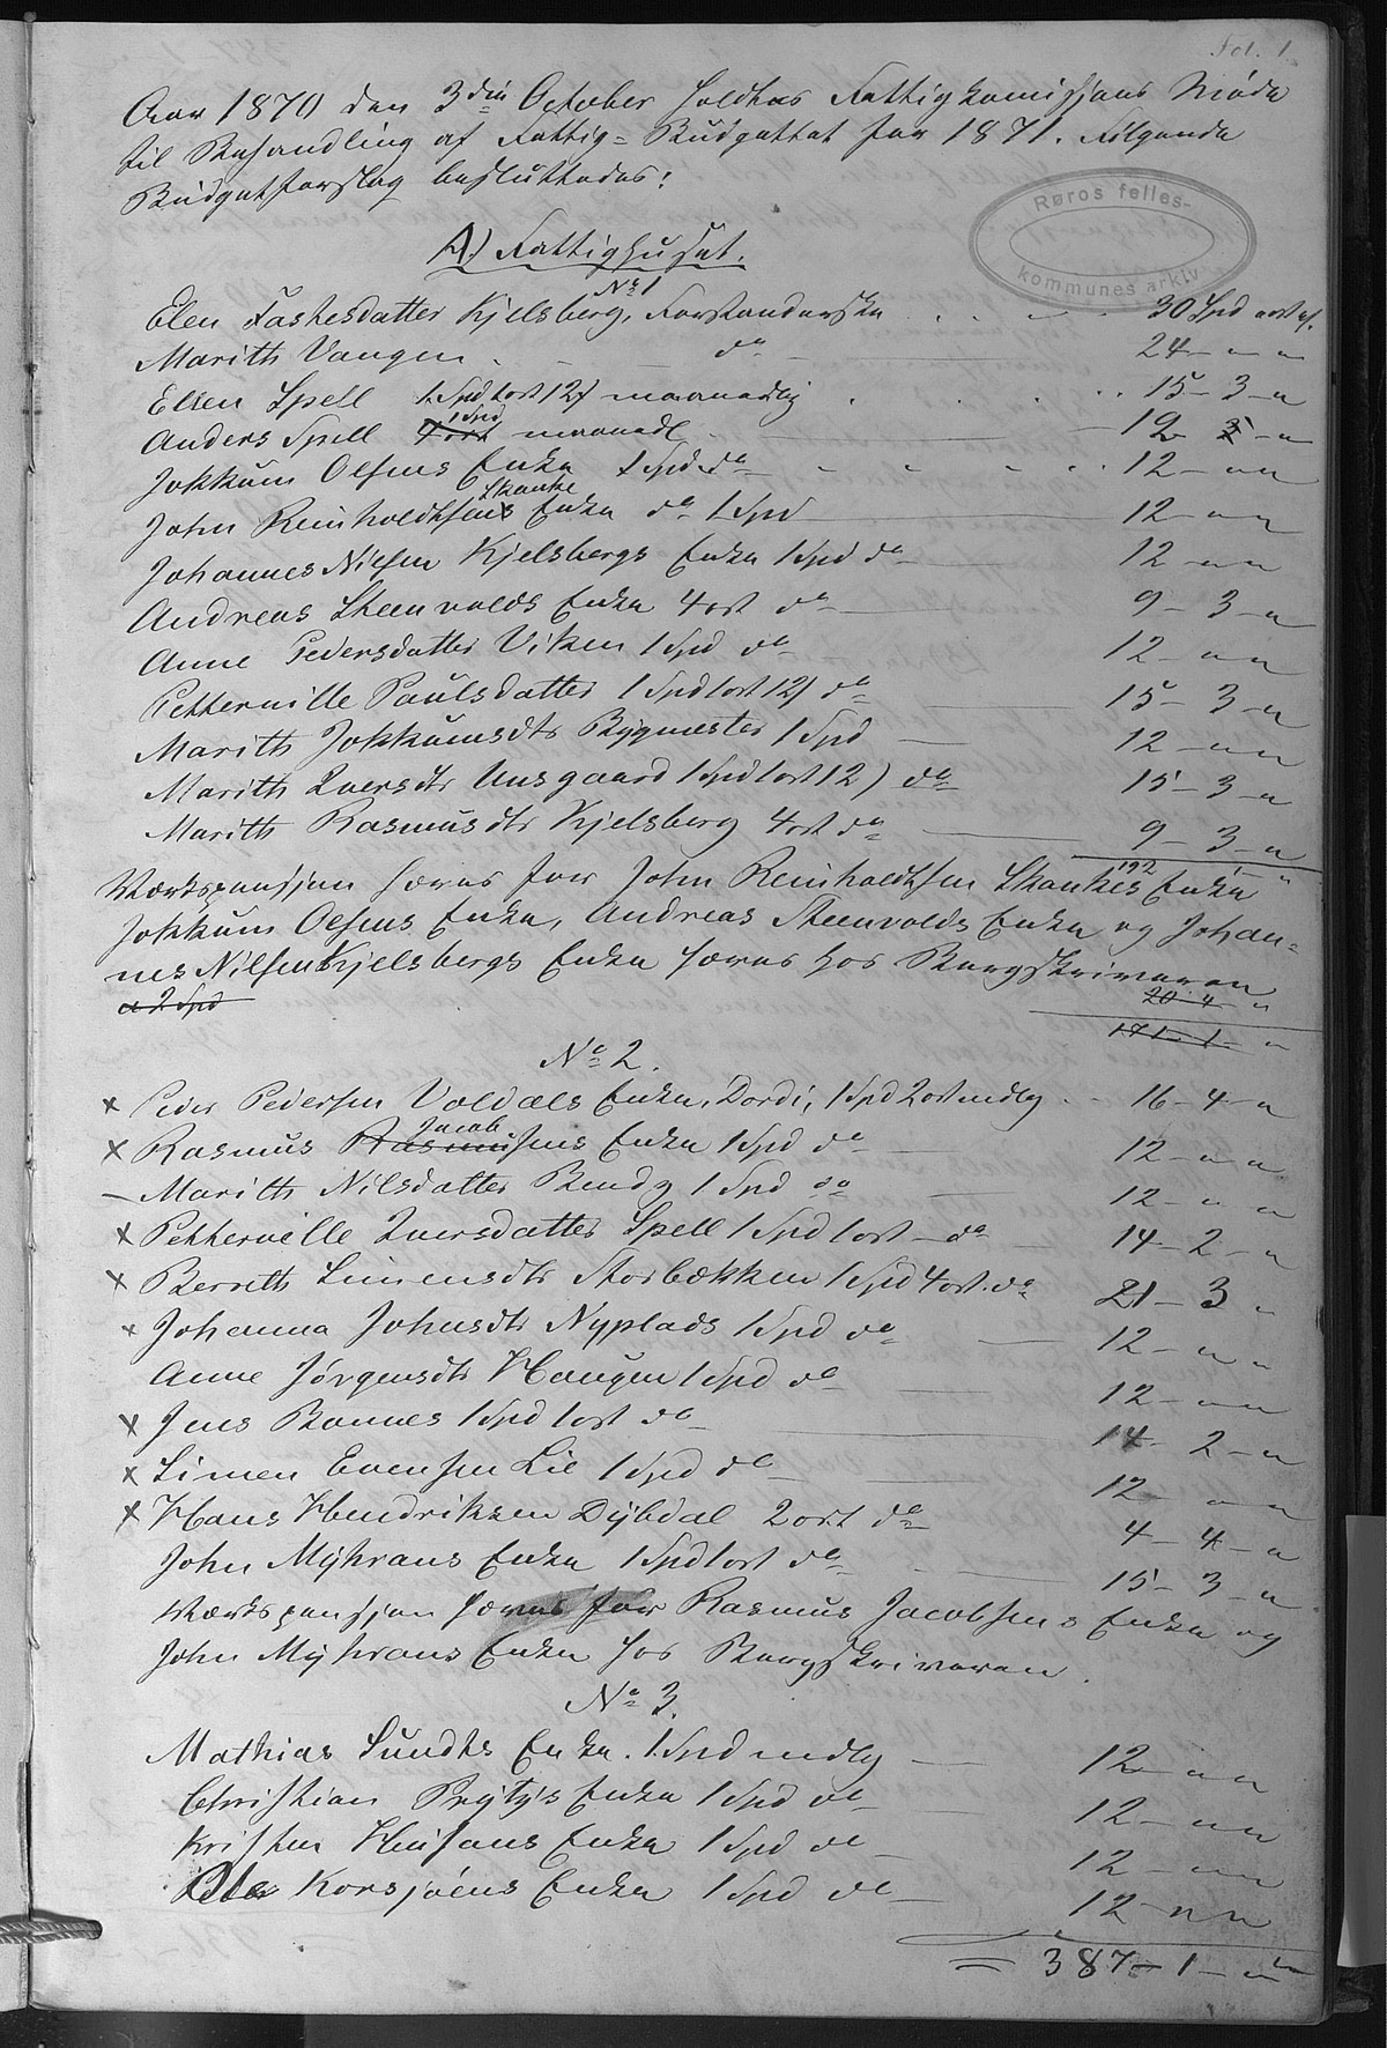 Fol. 1
Aar 1870 den 3die October holdtes Fattigkomissions Møde
til Behandling af Fattig=Budgettet for 1871. Følgende
Budgetforslag besluttedes:
Røros felles-
kommunes arkiv
A.) Fattighuset.
No 1
Elen Taskesdatter Kjelsberg, Forstanderske 30 Spd ort s.
Marith Vangen do 24 - " - "
Ellen Spell 1 Spd 1 ort 12 s maanedlig 15 - 3 - "
Anders Spell 4 ort 1 Spd maanedl 12 " - "
Jokkum Olsens Enke 1 Spd do 12 - " "
John Reinholdtsens Skanke Enke do 1 Spd 12 - " "
Johannes Nilsen Kjelsbergs Enke 1 Spd do 12 - " "
Andreas Steenvolds Enke 4 ort do 9 - 3 - "
Anne Pedersdatter Viken 1 Spd do 12 - " "
Petternille Paulsdatter 1 Spd 1 ort 12 s do 15 - 3 - "
Marith Jokkumsdtr Bygmester 1 Spd 12 - " "
Marith Iversdtr Unsgaard 1 Spd 1 ort 12 s do 15 - 3 - "
Marith Rasmusdtr Kjelsberg 4 ort do 9 - 3 - "
192 "
Værkspension hæves for John Reinholdtsen Skankes Enke
Jokkum Olsens Enke, Andreas Steenvolds Enke og Johan=
nes Nilsen Kjelsbergs Enke hæves hos Bergskriveren
a 2 Spd 20 - 4 - "
171 - 1 - "
No 2.
x Peder Pedersen Voldals Enke, Dordi, 1 Spd 2 ort mdlg 16 - 4 - "
x Rasmus Rasmusens Jacob Enke 1 Spd do 12 - " "
- Marith Nilsdatter Bendz 1 Spd do 12 - " "
x Petternille Iversdatter Spell 1 Spd 1 ort - do 14 - 2 - "
x Bereth Simensdtr Storbækken 1 Spd 4 ort. do 21 - 3 "
x Johanna Johnsdtr Nyplads 1 Spd do 12 - " "
Anne Jørgensdtr Haugen 1 Spd do 12 - " "
x Jens Bonnes 1 Spd 1 ort do 14 - 2 - "
x Simen Evensen Lie 1 Spd do 12 - " "
x Hans Hendriksen Dybdal 2 ort do 4 - 4 - "
John Myhrans Enke 1 Spd 1 ort do 15 - 3 - "
Værkspension hæves for Rasmus Jacobsens Enke og
John Myhrans Enke hos Bergskriveren.
No 3.
Mathias Sundts Enke. 1 Spd mdlg 12 - " "
Christian Prytz's Enke 1 Spd do 12 - " "
Kristen Enke 1 Spd do 12 - " "
Ole Korsjøens Enke 1 Spd do 12 - " "
= 387 - 1 - "